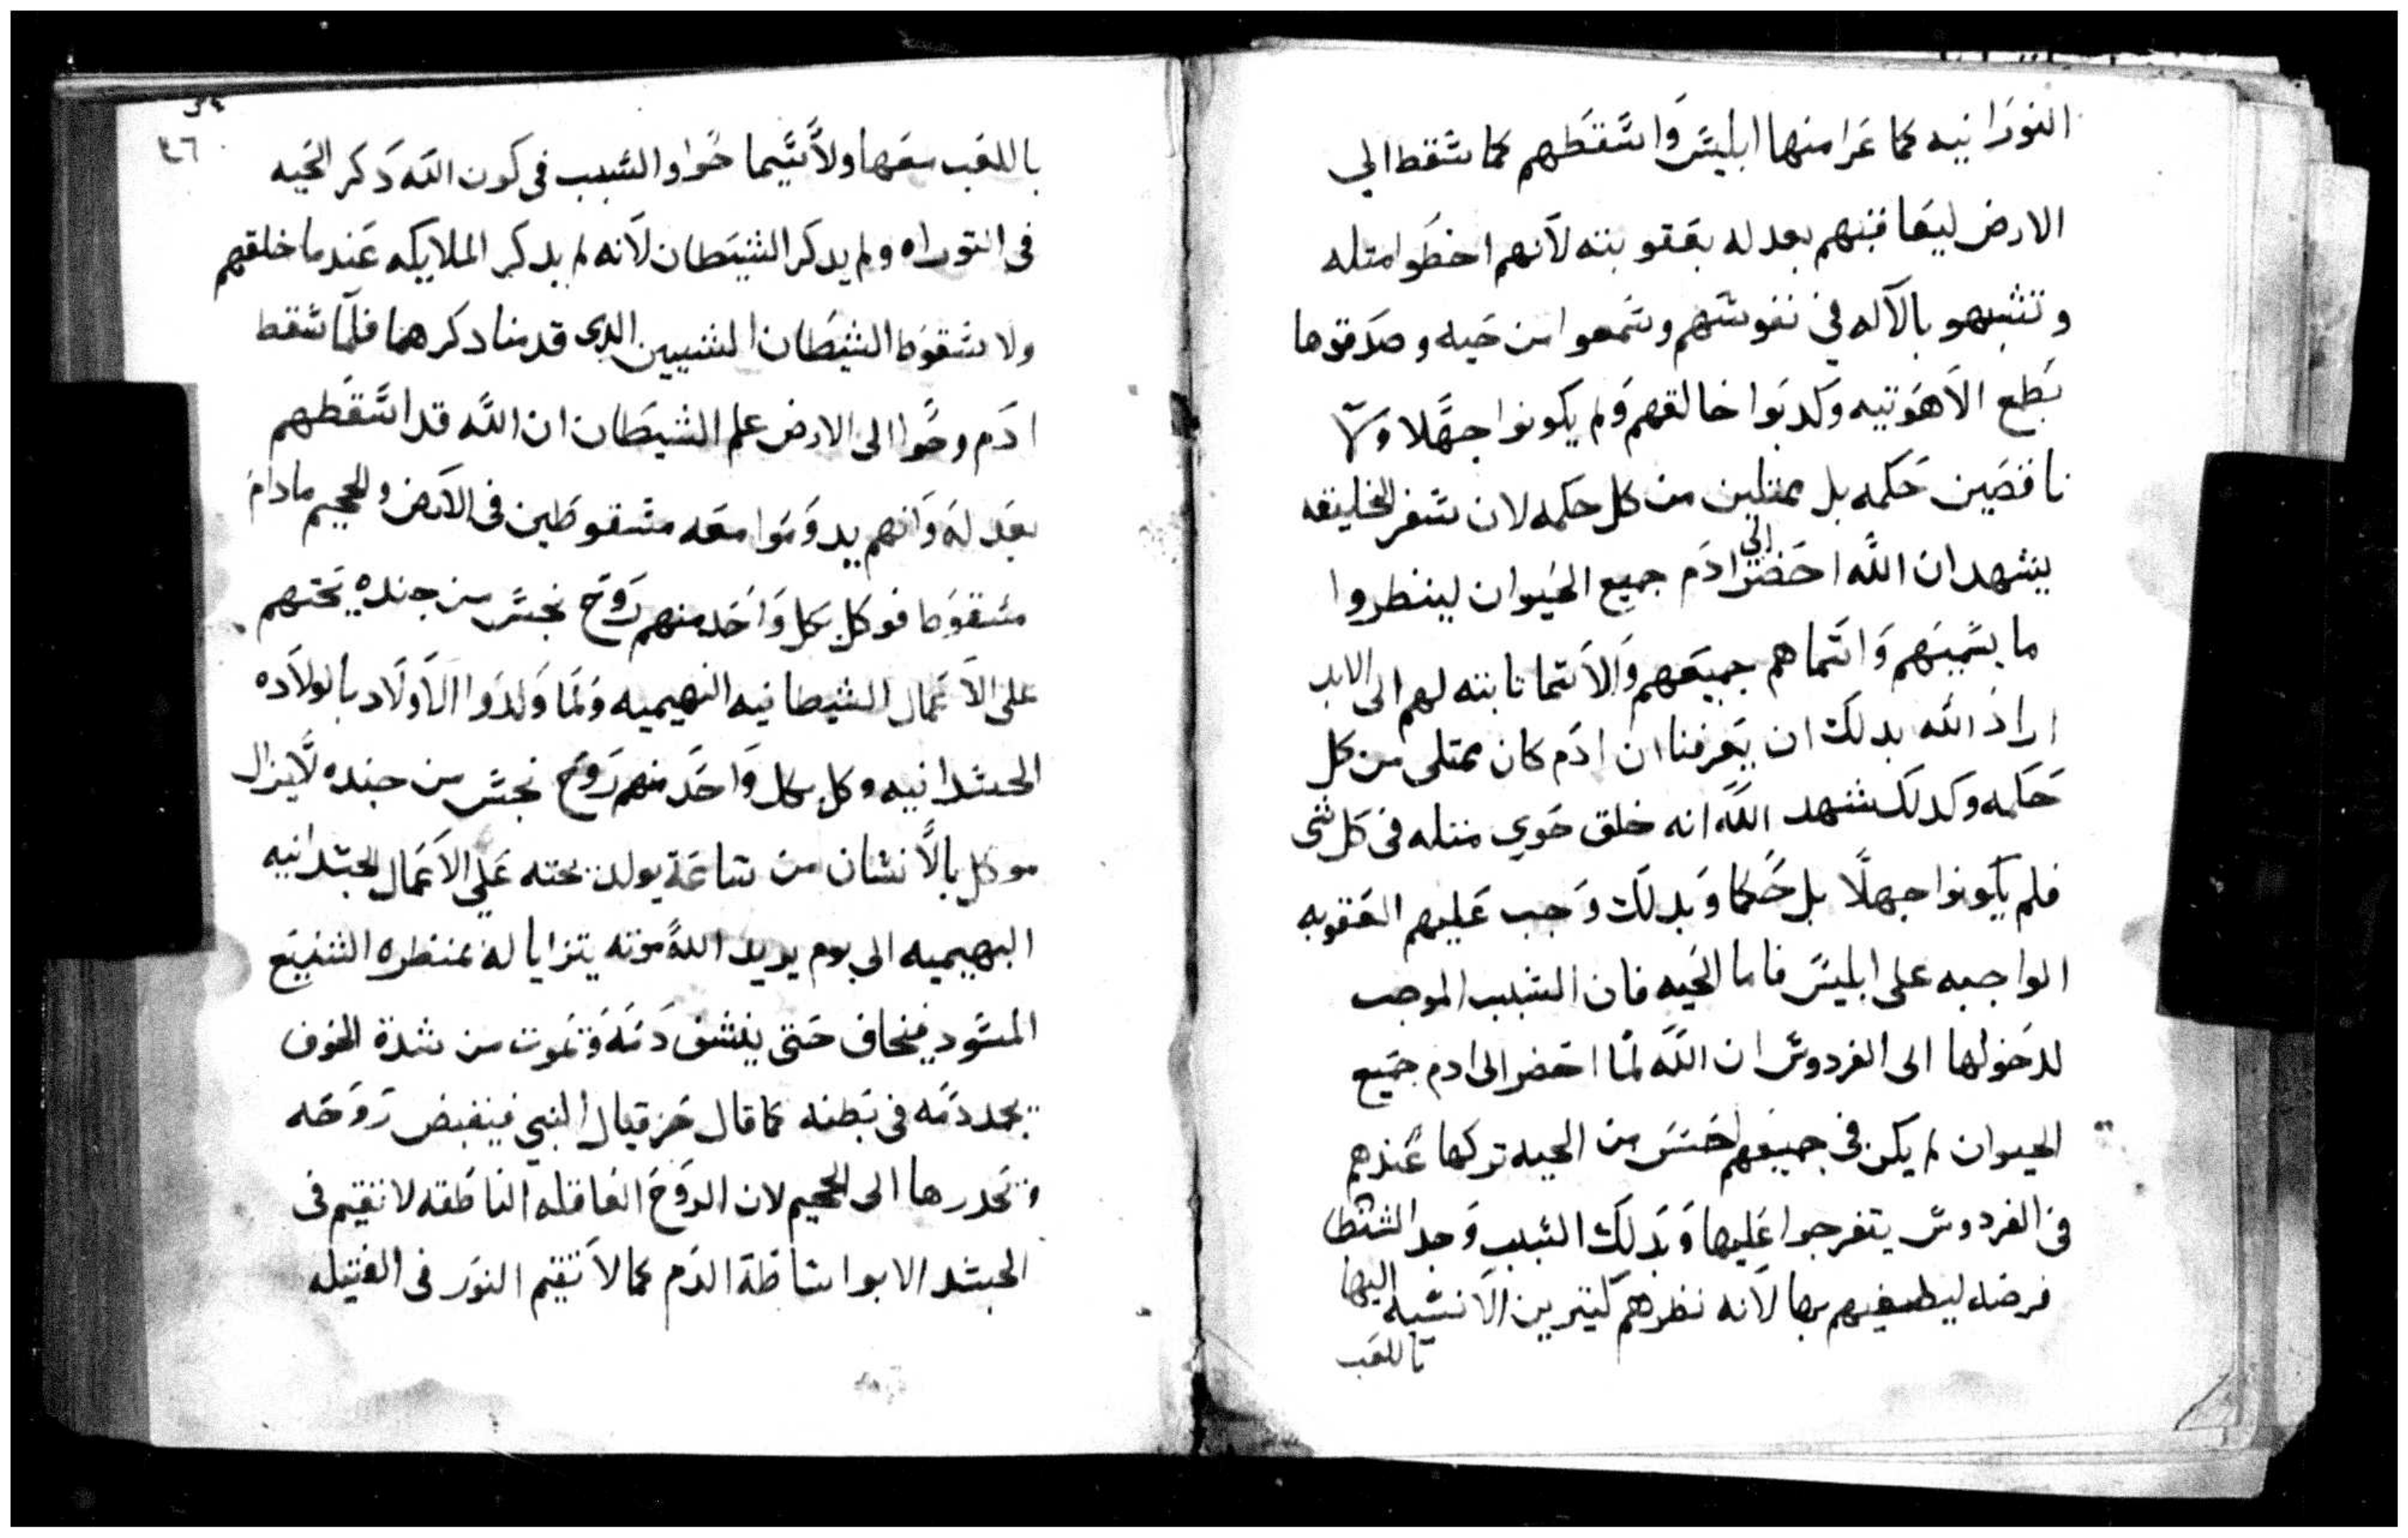 النورانيه كما عرا منها ابليس واسقطهم كما سقط الي
الارض ليعاقبهم بعدله بعقوبته لانهم اخطوا متله
وتشبهو بالآله في نفوسهم وسمعوا من حيه وصدقوها
بطع الاهوتيه وكدبوا خالقهم ولم يكونوا جهلا ولا
ناقصين حكمه بل ممتلين من كل حكمه لان سفر الخليقه
يشهد ان الله احضر الي ادم جميع الحيوان لينظروا
ما يسميهم واسماهم جميعهم والاسما تابته لهم الى الابد
اراد الله بدلك ان يعرفنا ان ادم كان ممتلى من كل
حكمه وكدلك شهد الله انه خلق حوي متله في كل شى
فلم يكونوا جهلا بل حكما وبدلك وجب عليهم العقوبه
الواجبه على ابليس فاما الحيه فان السبب الموجب
لدخولها الى الفردوس ان الله لما احضر الى ادم جميع
الحيوان لم يكن في جميعهم احسن من الحيه تركها عندهم
في الفردوس يتفرجوا عليها وبدلك السبب وجد الشيطا
فرصه ليطغيهم بها لانه نظرهم كتيرين الانسيه اليها
باللعب
٤٦
باللعب معها ولاسيما حوا والسبب في كون الله دكر الحيه
في التوراه ولم يدكر الشيطان لانه لم يدكر الملايكه عندما خلقهم
ولا سقوط الشيطان السببين الدى قدمنا دكرهما فلما سقط
ادم وحوا الى الارض علم الشيطان ان الله قد اسقطهم
بعدله وانهم يدوموا معه مسقوطين في الارض والجحيم مادام
مسقوطا فوكل بكل واحد منهم روح نجس من جنده يحتهم
على الاعمال الشيطانيه البهيميه ولما ولدوا الاولاد بالولاده
الجسدانيه وكل بكل واحد منهم روح نجس من جنده لايزال
موكل بالانسان من ساعة يولد يحته علي الاعمال الجسدانيه
البهيميه الى يوم يريد الله موته يترايا له بمنظره الشنيع
المسود فيخاف حتى ينشف دمه وتموت من شدة الخوف
يجمد دمه في بطنه كما قال حزقيال النبي فينقبض روحه
وتحدرها الى الجحيم لان الروح العاقله الناطقه لا تقيم فى
الجسد الا بواساطة الدم كما لا تقيم النور فى الفتيله